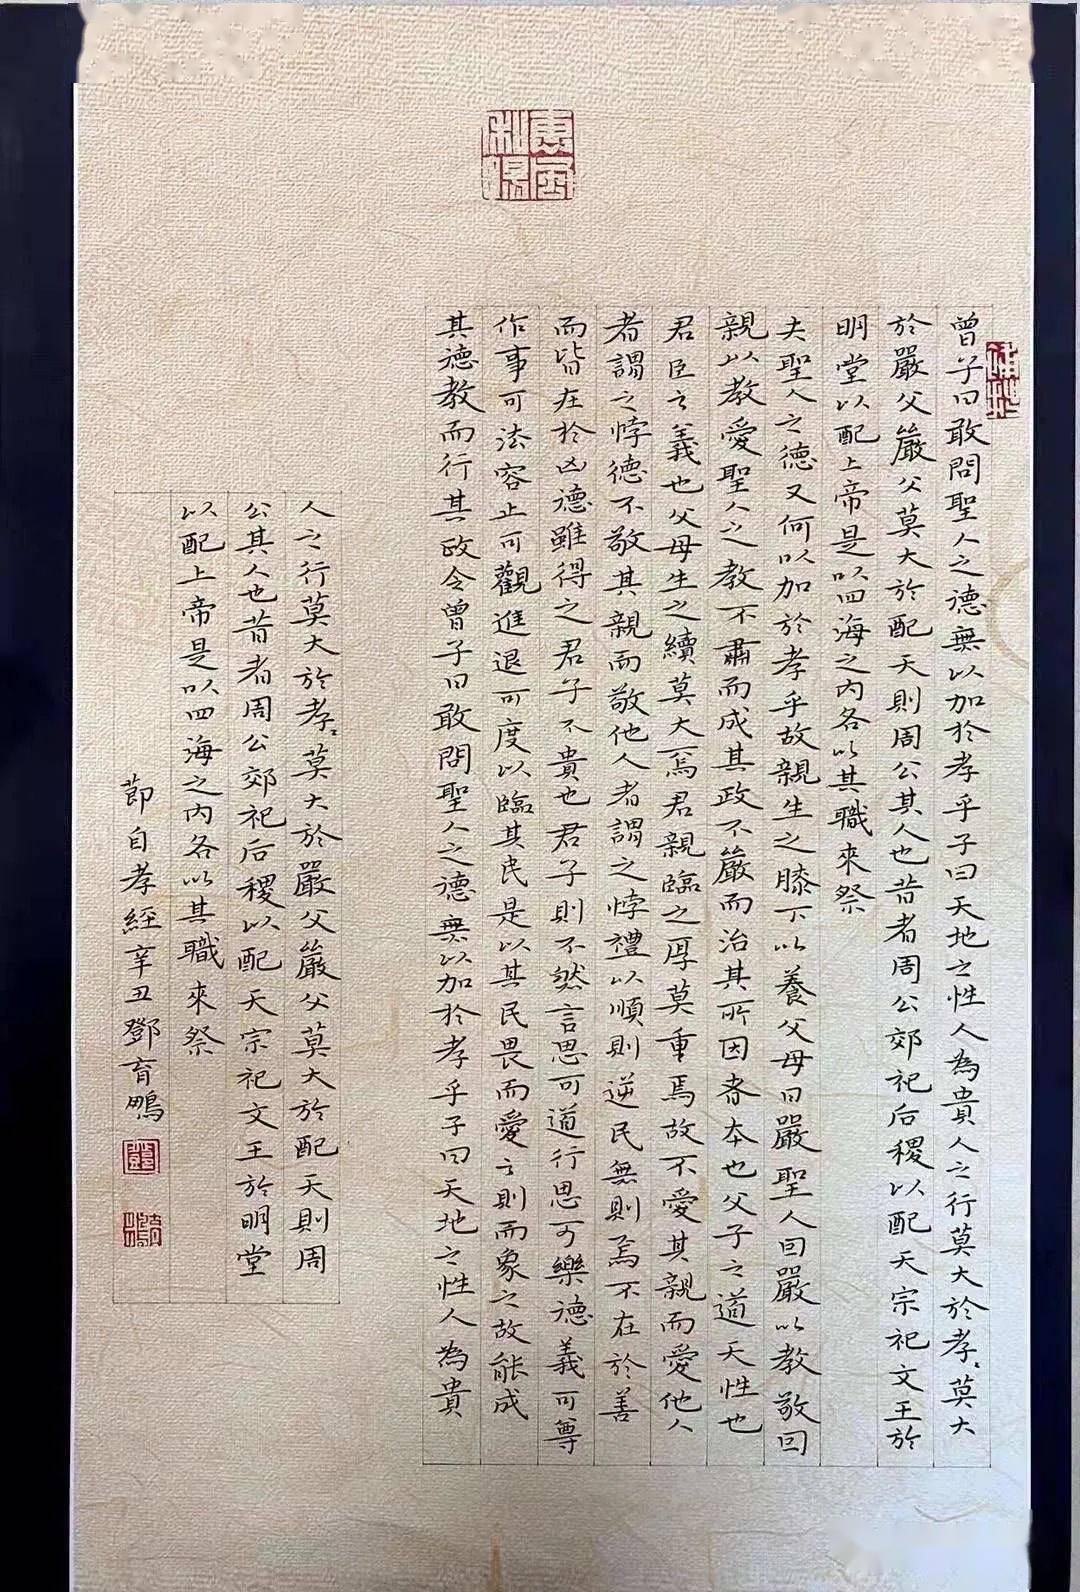 曾子曰敢問聖人之德無以加於孝乎子曰天地之性人為貴人之行莫大於孝〻莫大
於嚴父嚴父莫大於配天則周公其人也昔者周公郊祀后稷以配天宗祀文王於
明堂以配上帝是以四海之內各以其職來祭
夫聖人之德又何以加於孝乎故親生之膝下以養父母曰嚴聖人因嚴以教敬因
親以教愛聖人之教不肅而成其政不嚴而治其所因者本也父子之道天性也
君臣之義也父母生之續莫大焉君親臨之厚莫重焉故不愛其親而愛他人
者謂之悖德不敬其親而敬他人者謂之悖禮以順則逆民無則焉不在於善
而皆在於凶德雖得之君子不貴也君子則不然言思可道行思可樂德義可尊
作事可法容止可觀進退可度以臨其民是以其民畏而愛之則而象之故能成
其德教而行其政令曾子曰敢問聖人之德無以加於孝乎子曰天地之性人為貴
人之行莫大於孝〻莫大於嚴父嚴父莫大於配天則周
公其人也昔者周公郊祀后稷以配天宗祀文王於明堂
以配上帝是以四海之內各以其職來祭
節自孝經辛丑鄧育鵬